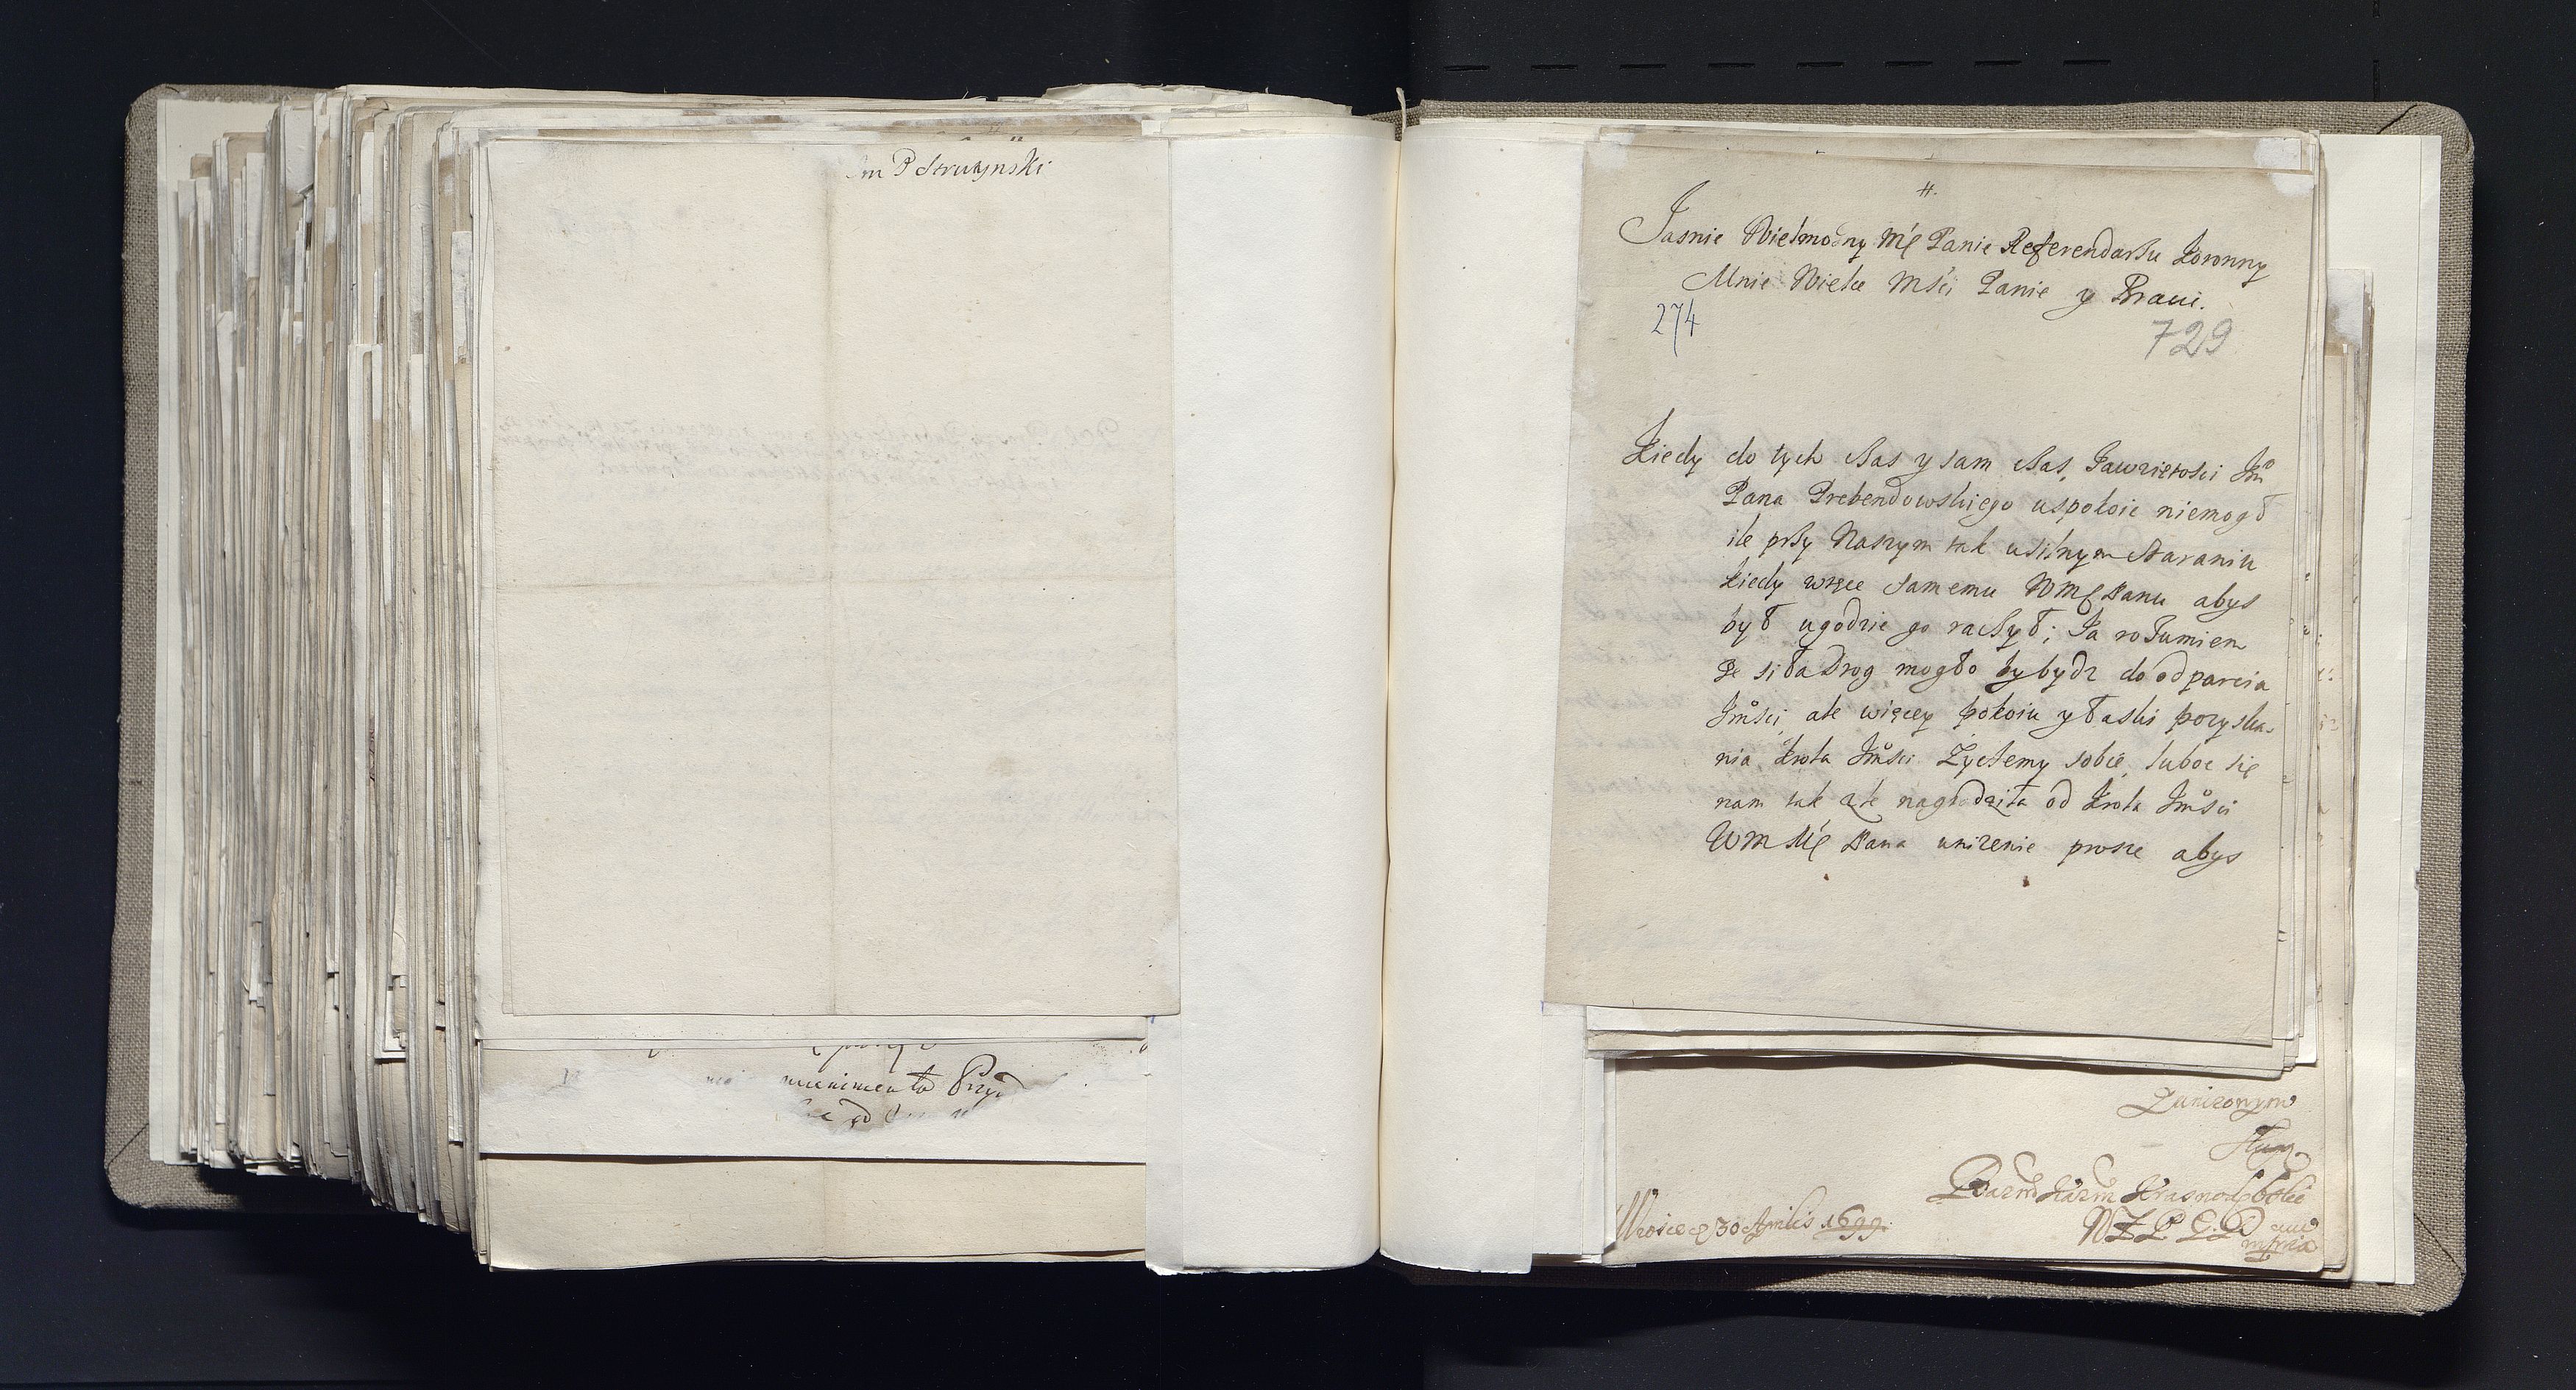 Jm P Strutynski
munimenta Przy
#.
Jasnie Wielmozny Mę Panie Referendarzu Koronny
Mnie Wielce Msci Panie y Bracie.
274
729
Kiedy do tych czas y sam czas Zawzietosci Jmº
Pana Prebendowskiego uspokoic niemogł
ile przy Naszym tak usilnym staraniu
kiedy więc samemu WMę Panu abys
był ugodzie go raczył; Ja rozumiem
ze siła Drog mogło by bydz do odparcia
Jmsci, ale więcey pokoiu y łaski pozyska-
nia Krola Jmsci Zyczemy sobie, luboc się
nam tak zle nagrodziła od Krola Jmsci
WM Mę Pana unizenie prosze abys
Zunizonym
Sługą
Krasnod
30 Aprilis 1699.
WZP
mpria